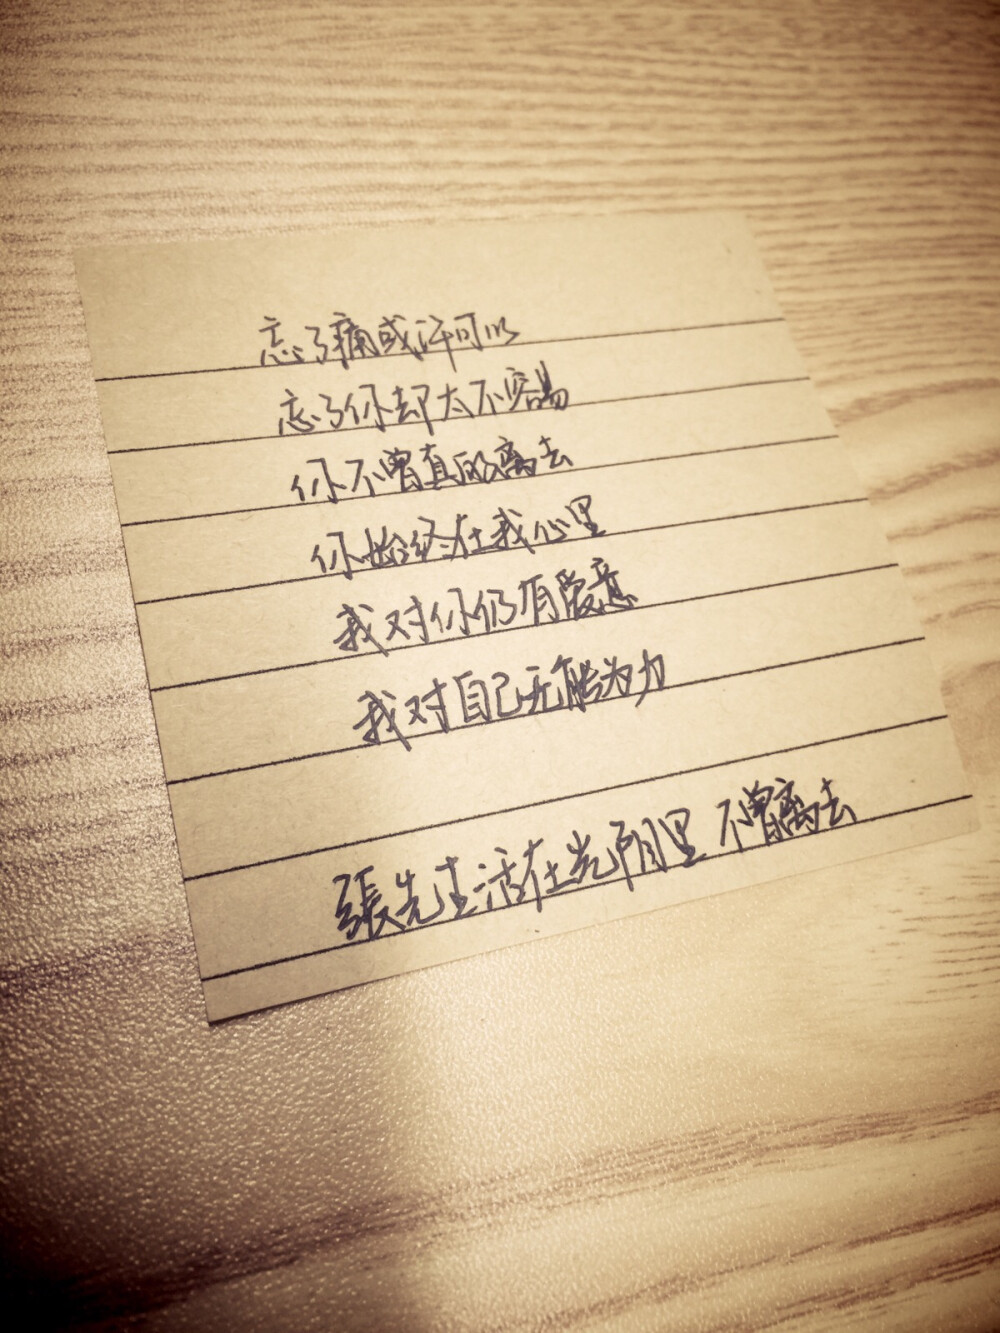 忘了痛或许可以
忘了你却太不容易
你不曾真的离去
你始终在我心里
我对你仍有爱意
我对自己无能为力
張先生活在光阴里 不曾离去